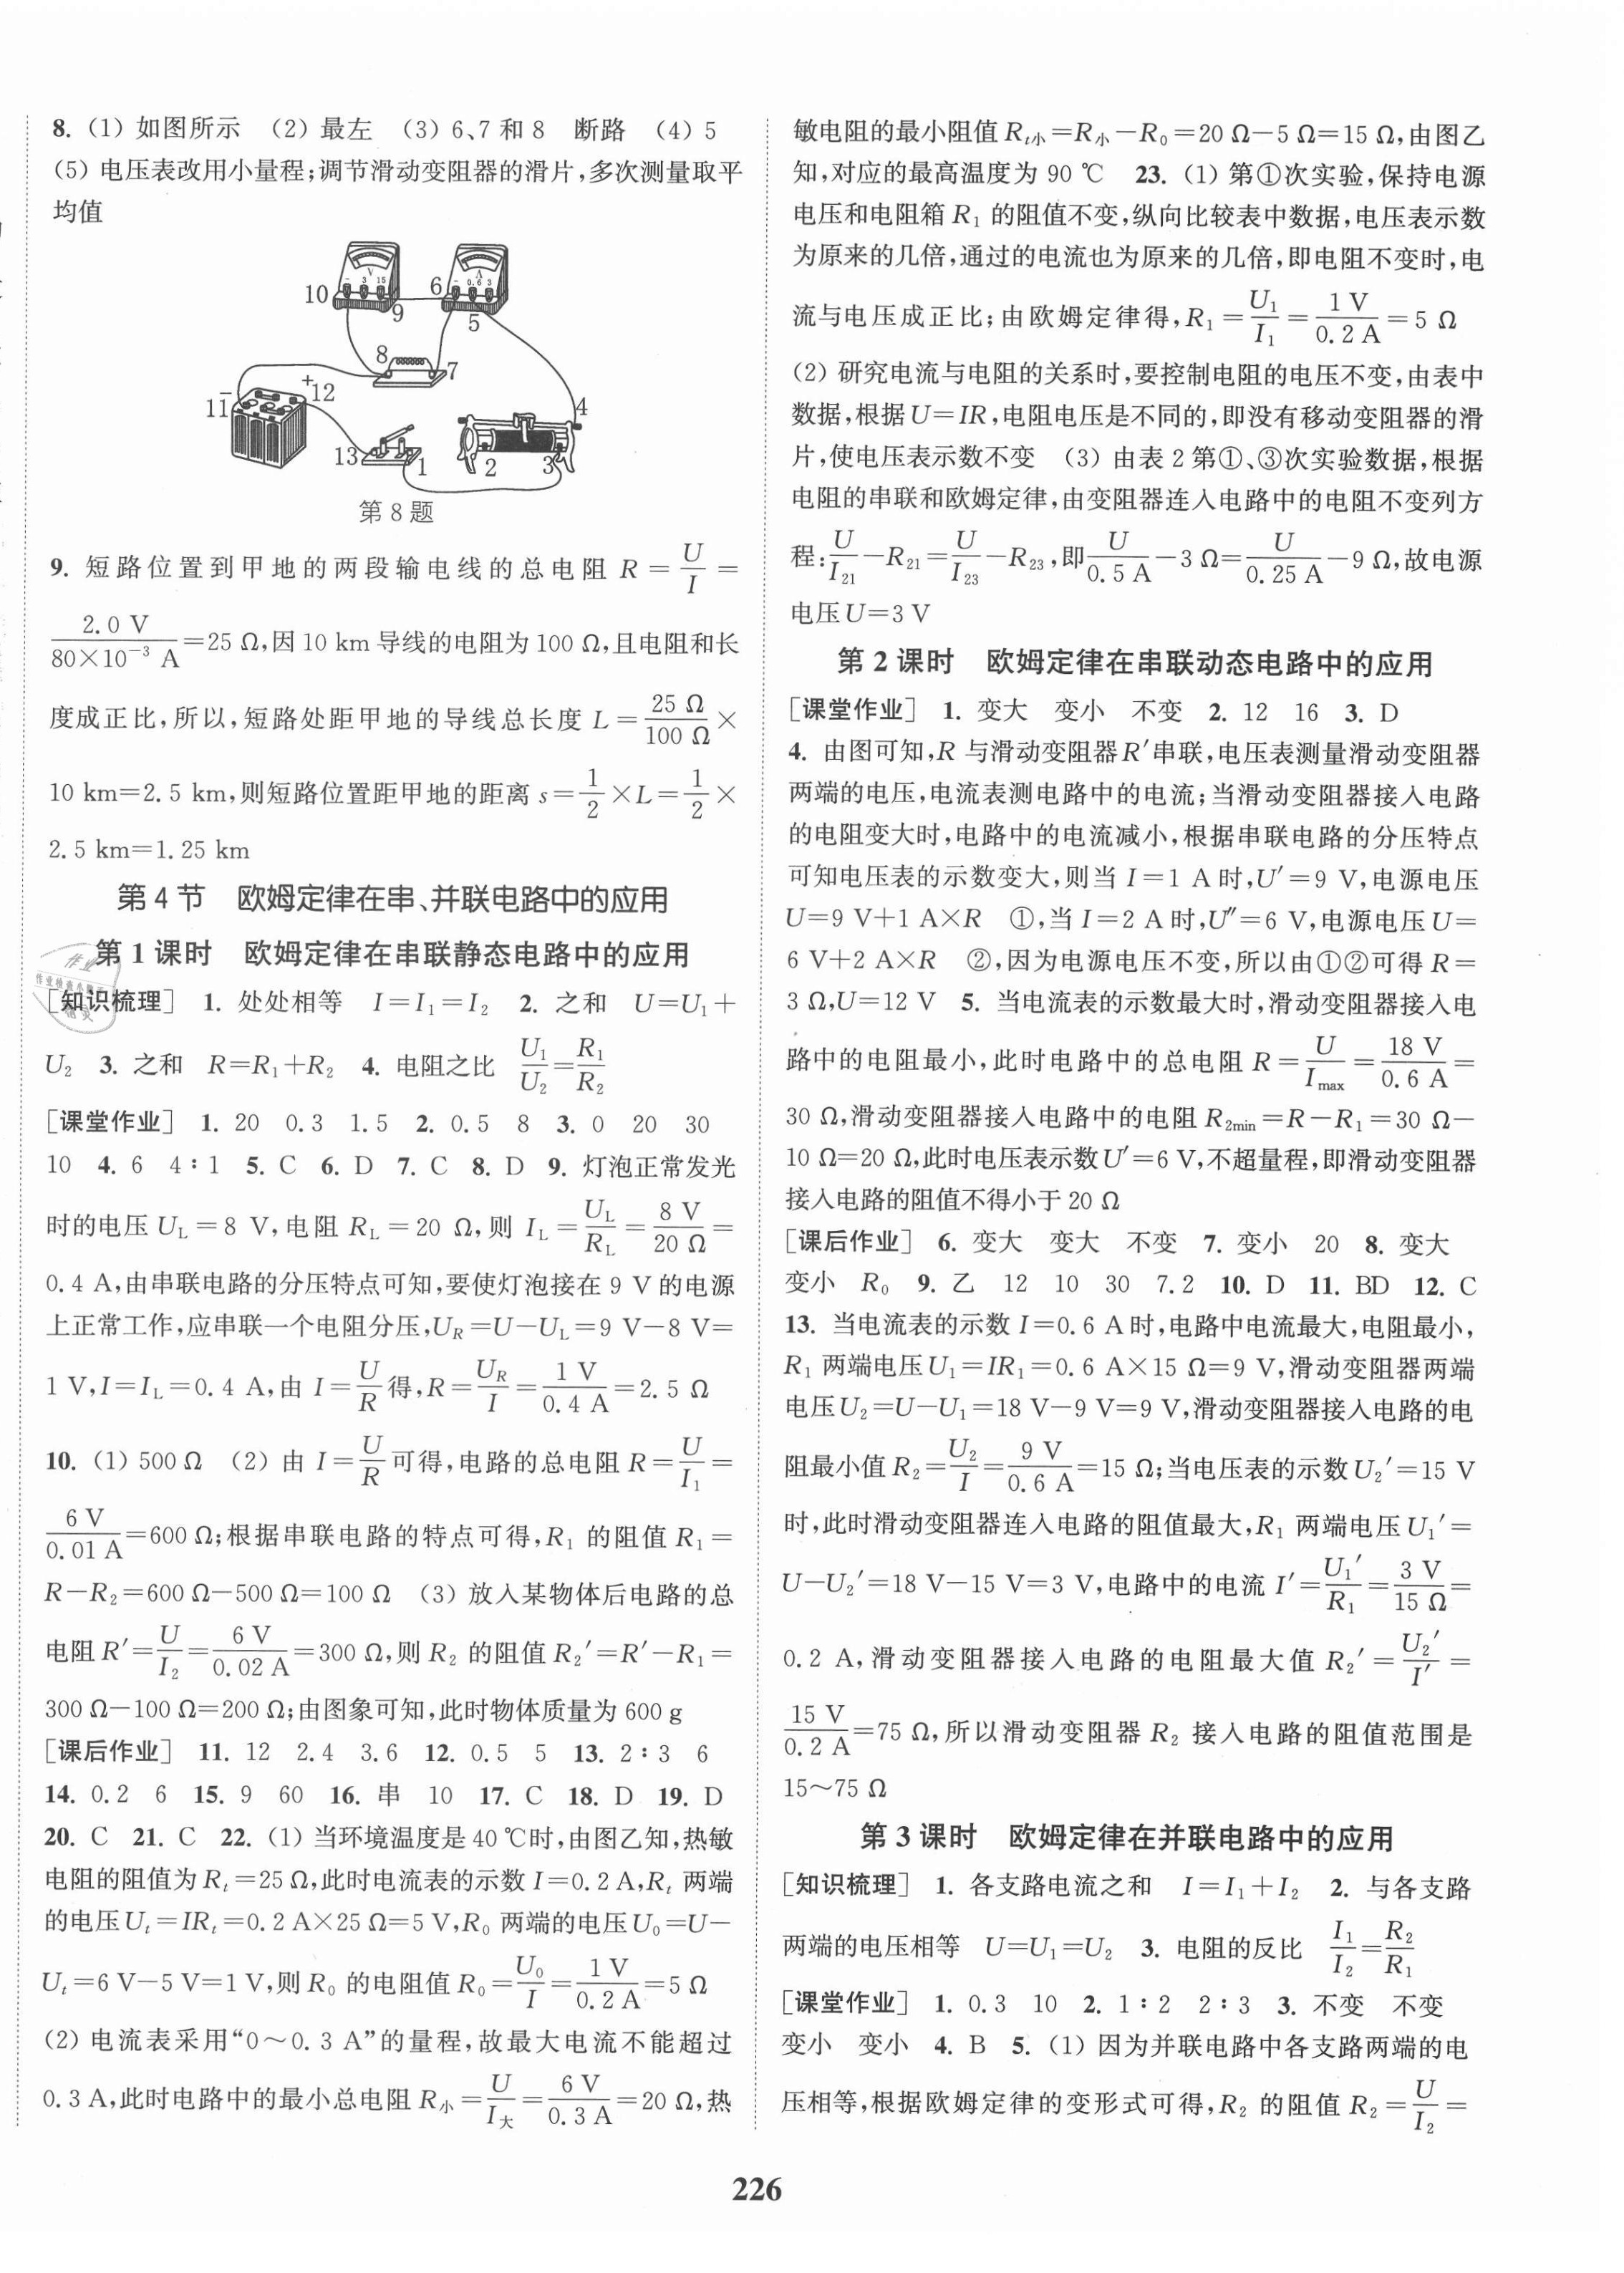 8. (1) 如图所示 (2) 最左 (3) 6、7 和 8 断路 (4) 5
(5) 电压表改用小量程;调节滑动变阻器的滑片,多次测量取平
均值
V
- 3 15
A
- 0.6 3
10
9
6
5
8
7
- +
11
12
4
13
1
2
3
第 8 题
9. 短路位置到甲地的两段输电线的总电阻 R = U/I =
2.0 V/(80×10⁻³ A)=25 Ω,因 10 km 导线的电阻为 100 Ω,且电阻和长
度成正比,所以,短路处距甲地的导线总长度 L = 25 Ω/100 Ω ×
10 km=2.5 km,则短路位置距甲地的距离 s = 1/2 ×L= 1/2 ×
2.5 km=1.25 km
第 4 节 欧姆定律在串、并联电路中的应用
第 1 课时 欧姆定律在串联静态电路中的应用
[知识梳理] 1. 处处相等 I=I₁=I₂ 2. 之和 U=U₁+
U₂ 3. 之和 R=R₁+R₂ 4. 电阻之比 U₁/U₂=R₁/R₂
[课堂作业] 1. 20 0.3 1.5 2. 0.5 8 3. 0 20 30
10 4. 6 4∶1 5. C 6. D 7. C 8. D 9. 灯泡正常发光
时的电压 U_L = 8 V,电阻 R_L = 20 Ω,则 I_L = U_L/R_L = 8 V/20 Ω =
0.4 A,由串联电路的分压特点可知,要使灯泡接在 9 V 的电源
上正常工作,应串联一个电阻分压,U_R=U-U_L=9 V-8 V=
1 V,I=I_L=0.4 A,由 I=U/R 得,R=U_R/I=1 V/0.4 A=2.5 Ω
10. (1) 500 Ω (2) 由 I=U/R 可得,电路的总电阻 R=U/I₁=
6 V/0.01 A=600 Ω;根据串联电路的特点可得,R₁ 的阻值 R₁=
R-R₂=600 Ω-500 Ω=100 Ω (3) 放入某物体后电路的总
电阻 R′=U/I₂=6 V/0.02 A=300 Ω,则 R₂ 的阻值 R₂′=R′-R₁=
300 Ω-100 Ω=200 Ω;由图象可知,此时物体质量为 600 g
[课后作业] 11. 12 2.4 3.6 12. 0.5 5 13. 2∶3 6
14. 0.2 6 15. 9 60 16. 串 10 17. C 18. D 19. D
20. C 21. C 22. (1) 当环境温度是 40 ℃时,由图乙知,热敏
电阻的阻值为 R_t=25 Ω,此时电流表的示数 I=0.2 A,R_t 两端
的电压 U_t=IR_t=0.2 A×25 Ω=5 V,R₀ 两端的电压 U₀=U-
U_t=6 V-5 V=1 V,则 R₀ 的电阻值 R₀=U₀/I=1 V/0.2 A=5 Ω
(2) 电流表采用“0~0.3 A”的量程,故最大电流不能超过
0.3 A,此时电路中的最小总电阻 R小=U/I大=6 V/0.3 A=20 Ω,热
敏电阻的最小阻值 R_t小=R小-R₀=20 Ω-5 Ω=15 Ω,由图乙
知,对应的最高温度为 90 ℃ 23. (1) 第①次实验,保持电源
电压和电阻箱 R₁ 的阻值不变,纵向比较表中数据,电压表示数
为原来的几倍,通过的电流也为原来的几倍,即电阻不变时,电
流与电压成正比;由欧姆定律得,R₁=U₁/I₁=1 V/0.2 A=5 Ω
(2) 研究电流与电阻的关系时,要控制电阻的电压不变,由表中
数据,根据 U=IR,电阻电压是不同的,即没有移动变阻器的滑
片,使电压表示数不变 (3) 由表 2 第①、③次实验数据,根据
电阻的串联和欧姆定律,由变阻器连入电路中的电阻不变列方
程:U/I₂₁-R₂₁=U/I₂₃-R₂₃,即U/0.5 A-3 Ω=U/0.25 A-9 Ω,故电源
电压 U=3 V
第 2 课时 欧姆定律在串联动态电路中的应用
[课堂作业] 1. 变大 变小 不变 2. 12 16 3. D
4. 由图可知,R 与滑动变阻器 R′串联,电压表测量滑动变阻器
两端的电压,电流表测电路中的电流;当滑动变阻器接入电路
的电阻变大时,电路中的电流减小,根据串联电路的分压特点
可知电压表的示数变大,则当 I=1 A 时,U′=9 V,电源电压
U=9 V+1 A×R ①,当 I=2 A 时,U″=6 V,电源电压 U=
6 V+2 A×R ②,因为电源电压不变,所以由①②可得 R=
3 Ω,U=12 V 5. 当电流表的示数最大时,滑动变阻器接入电
路中的电阻最小,此时电路中的总电阻 R=U/I_max=18 V/0.6 A=
30 Ω,滑动变阻器接入电路中的电阻 R_2min=R-R₁=30 Ω-
10 Ω=20 Ω,此时电压表示数 U′=6 V,不超量程,即滑动变阻器
接入电路的阻值不得小于 20 Ω
[课后作业] 6. 变大 变大 不变 7. 变小 20 8. 变大
变小 R₀ 9. 乙 12 10 30 7.2 10. D 11. BD 12. C
13. 当电流表的示数 I=0.6 A 时,电路中电流最大,电阻最小,
R₁ 两端电压 U₁=IR₁=0.6 A×15 Ω=9 V,滑动变阻器两端
电压 U₂=U-U₁=18 V-9 V=9 V,滑动变阻器接入电路的电
阻最小值 R₂=U₂/I=9 V/0.6 A=15 Ω;当电压表的示数 U₂′=15 V
时,此时滑动变阻器连入电路的阻值最大,R₁ 两端电压 U₁′=
U-U₂′=18 V-15 V=3 V,电路中的电流 I′=U₁′/R₁=3 V/15 Ω=
0.2 A,滑动变阻器接入电路的电阻最大值 R₂′=U₂′/I′=
15 V/0.2 A=75 Ω,所以滑动变阻器 R₂ 接入电路的阻值范围是
15~75 Ω
第 3 课时 欧姆定律在并联电路中的应用
[知识梳理] 1. 各支路电流之和 I=I₁+I₂ 2. 与各支路
两端的电压相等 U=U₁=U₂ 3. 电阻的反比 I₁/I₂=R₂/R₁
[课堂作业] 1. 0.3 10 2. 1∶2 2∶3 3. 不变 不变
变小 变小 4. B 5. (1) 因为并联电路中各支路两端的电
压相等,根据欧姆定律的变形式可得,R₂ 的阻值 R₂=U/I₂=
226